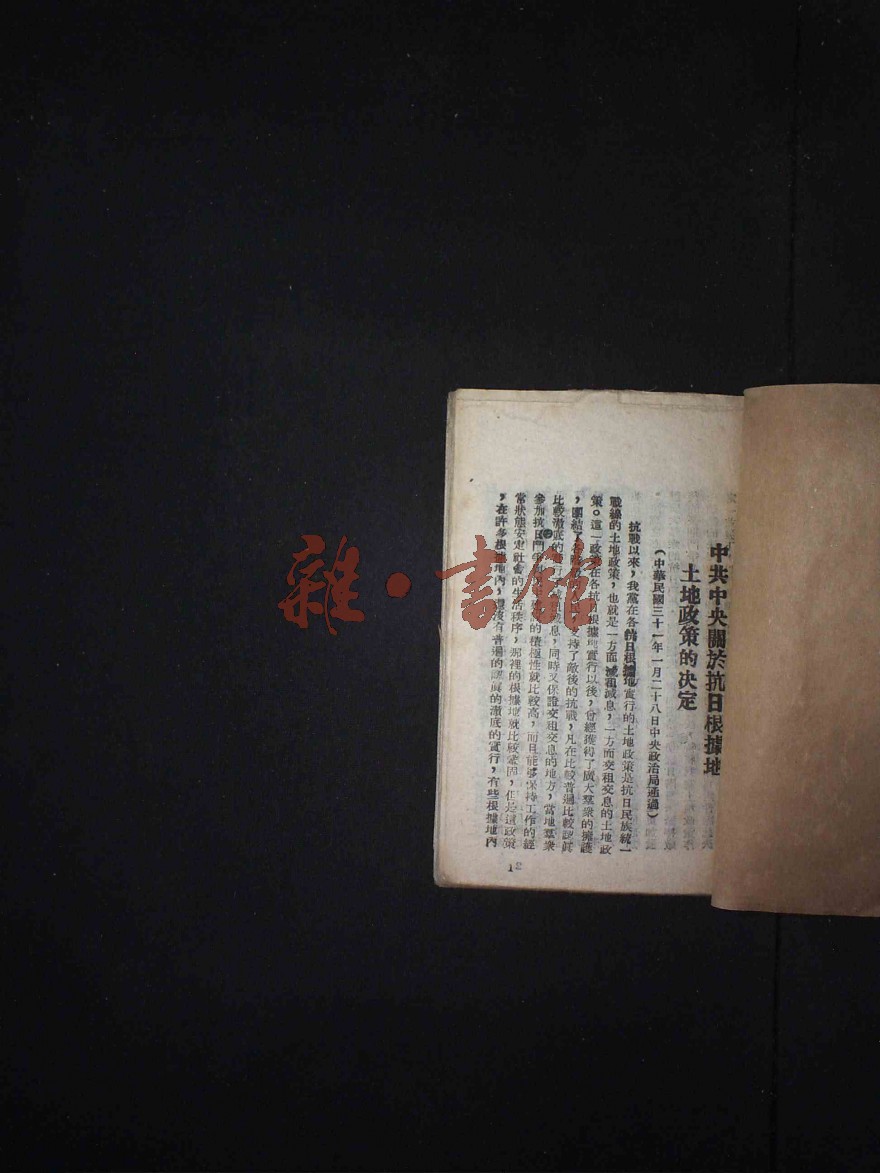 中共中央關於抗日根據地
土地政策的决定
(中華民國三十一年一月二十八日中央政治局通過)
抗戰以來,我黨在各抗日根據地實行的土地政策是抗日民族統一
戰線的土地政策,也就是一方面減租減息,一方面交租交息的土地政
策。這一政策在各抗日根據地實行以後,曾經獲得了廣大羣衆的擁護
,團結了 支持了敵後的抗戰,凡在比較普遍比較認眞
比較澈底的 減息,同時又保證交租交息的地方,當地羣衆
參加抗日鬥爭 的積極性就比較高,而且能够保持工作的經
常狀態安定社會的生活秩序,那裡的根據地就比較鞏固,但是這政策
,在許多根據地內,還沒有普遍的認眞的澈底的實行,有些根據地內
12
雜·書館